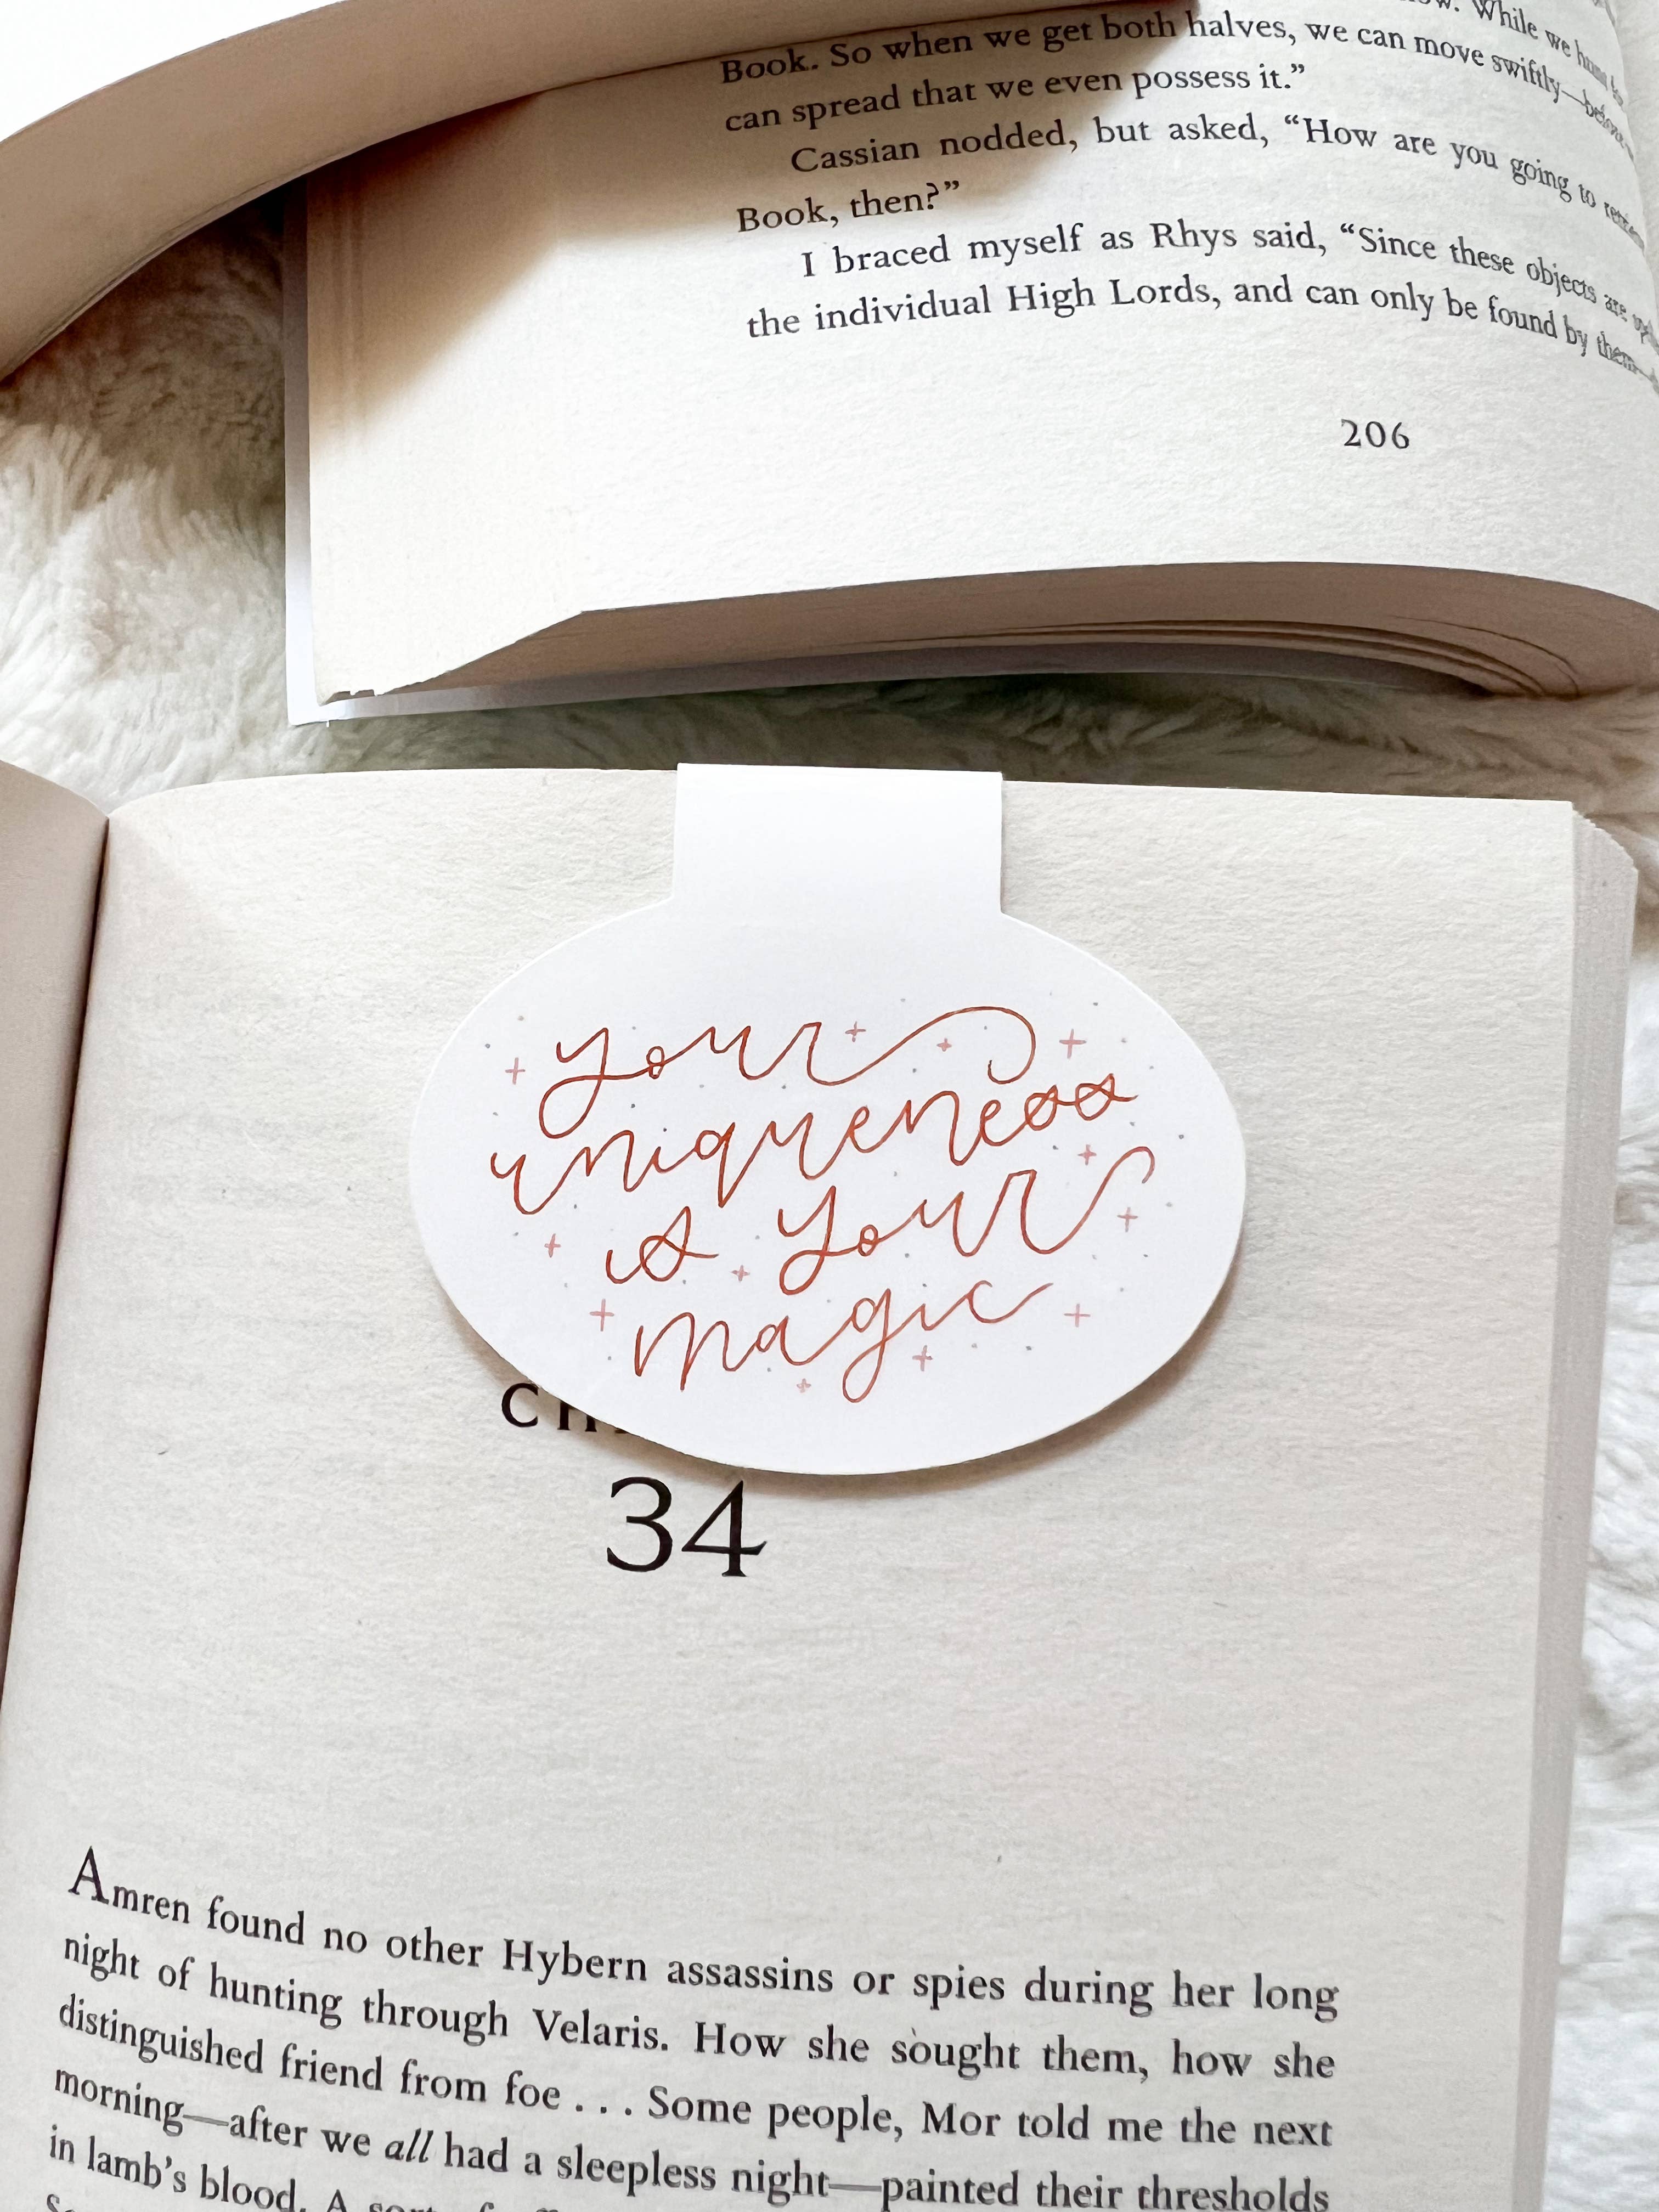 While we hunt
Book. So when we get both halves, we can move swiftly—before
can spread that we even possess it.”
Cassian nodded, but asked, “How are you going to
Book, then?”
I braced myself as Rhys said, “Since these objects are
the individual High Lords, and can only be found by them—
206
your
uniqueness
is your
magic
34
Amren found no other Hybern assassins or spies during her long
night of hunting through Velaris. How she sought them, how she
distinguished friend from foe . . . Some people, Mor told me the next
morning—after we all had a sleepless night—painted their thresholds
in lamb’s blood. A sort of